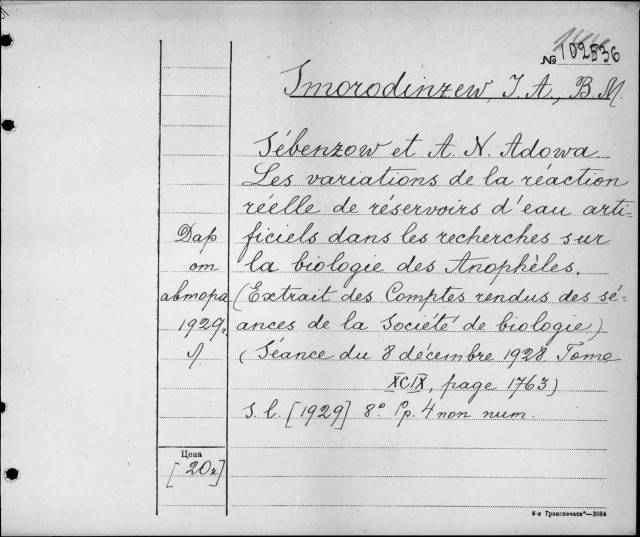 № 102536
Smorodinzew, J. A., B. M.
Sébenzow et A. N. Adowa.
Les variations de la réaction
réelle de réservoirs d'eau arti-
ficiels dans les recherches sur
la biologie des Anophèles.
(Extrait des Comptes rendus des sé-
ances de la Société de biologie)
(Séance du 8 décembre 1928 Tome
XCIX, page 1763)
S. l. [1929] 8° Pp. 4 non num.
Дар
от
автора
1929г.
Цена
[20к]
6-я Транспечать"—3884